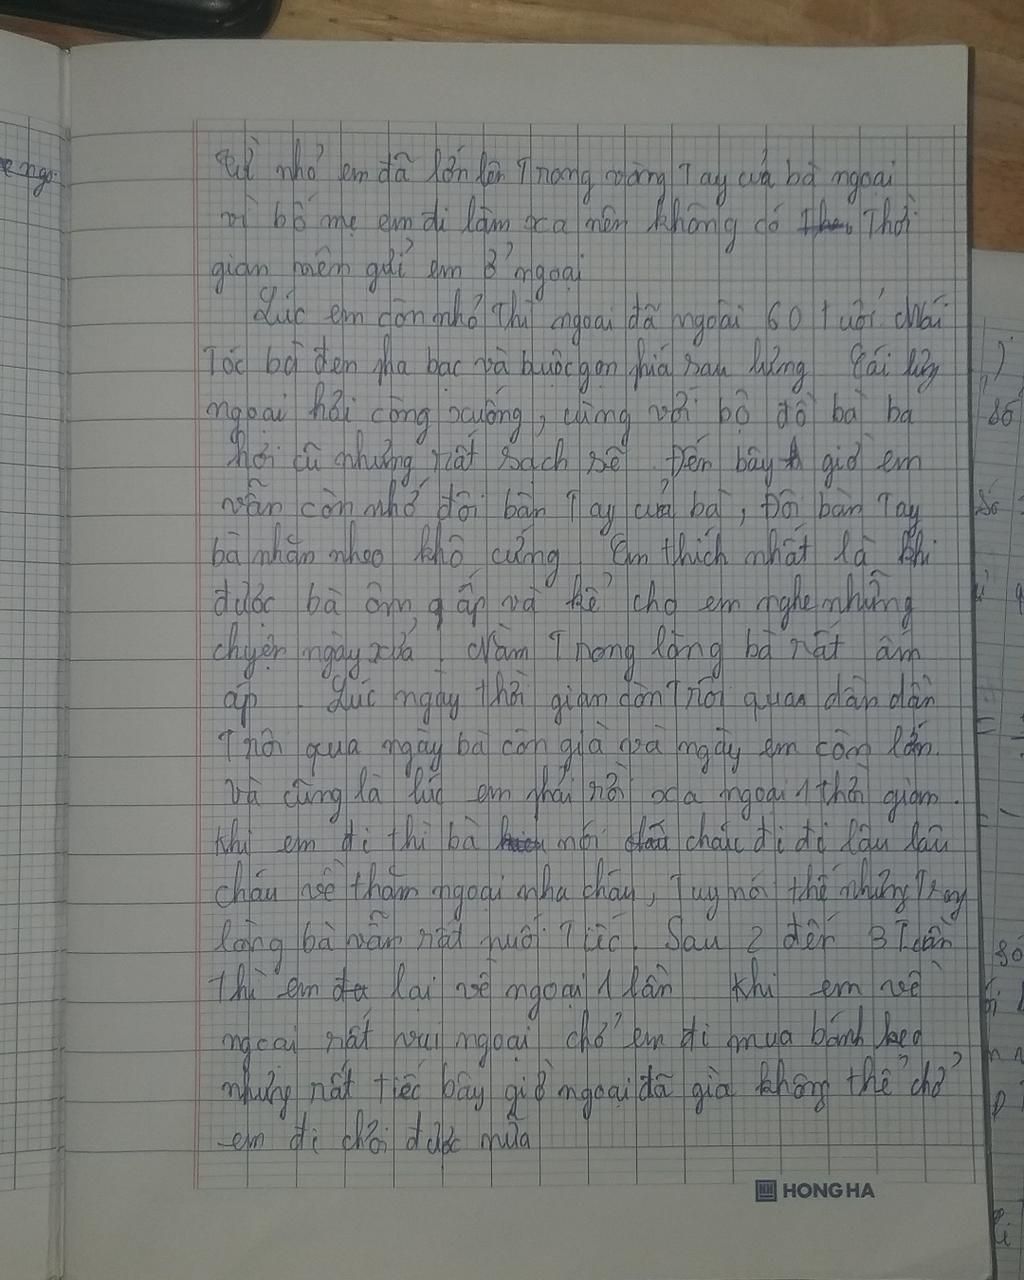 nhỏ em đã lớn lên Trong vòng Tay của bà ngoại
vì bố mẹ em đi làm xa nên không có Thời
gian nên gửi em ở ngoại
Lúc em còn nhỏ Thì ngoại đã ngoài 60 tuổi Mái
Tóc bà đen pha bạc và buộc gọn phía sau lưng Cái lưng
ngoại hơi còng xuống, cùng với bộ đồ bà ba
hơi cũ nhưng rất sạch sẽ Đến bây giờ em
vẫn còn nhớ đôi bàn Tay của bà, Đôi bàn Tay
bà nhăn nheo khô cứng Em thích nhất là khi
được bà ôm ấp và kể cho em nghe những
chyện ngày xửa Nằm Trong lòng bà rất ấm
áp. Lúc ngày thời gian còn Trôi qua dần dần
Trôi qua ngày bà còn già và ngày em còn lớn.
Và cũng là lúc em phải rời xa ngoại 1 thời gian.
Khi em đi thì bà nói cháu đi đi lâu lâu
cháu về thăm ngoại nha cháu, Tuy nói thế nhưng Trong
lòng bà vẫn rất nuối Tiếc. Sau 2 đến 3 Tuần
Thì em lại về ngoại 1 lần Khi em về
ngoại rất vui ngoại chở em đi mua bánh kẹo
nhưng rất tiếc bây giờ ngoại đã già không thể chở
em đi chơi được nữa
HONG HA